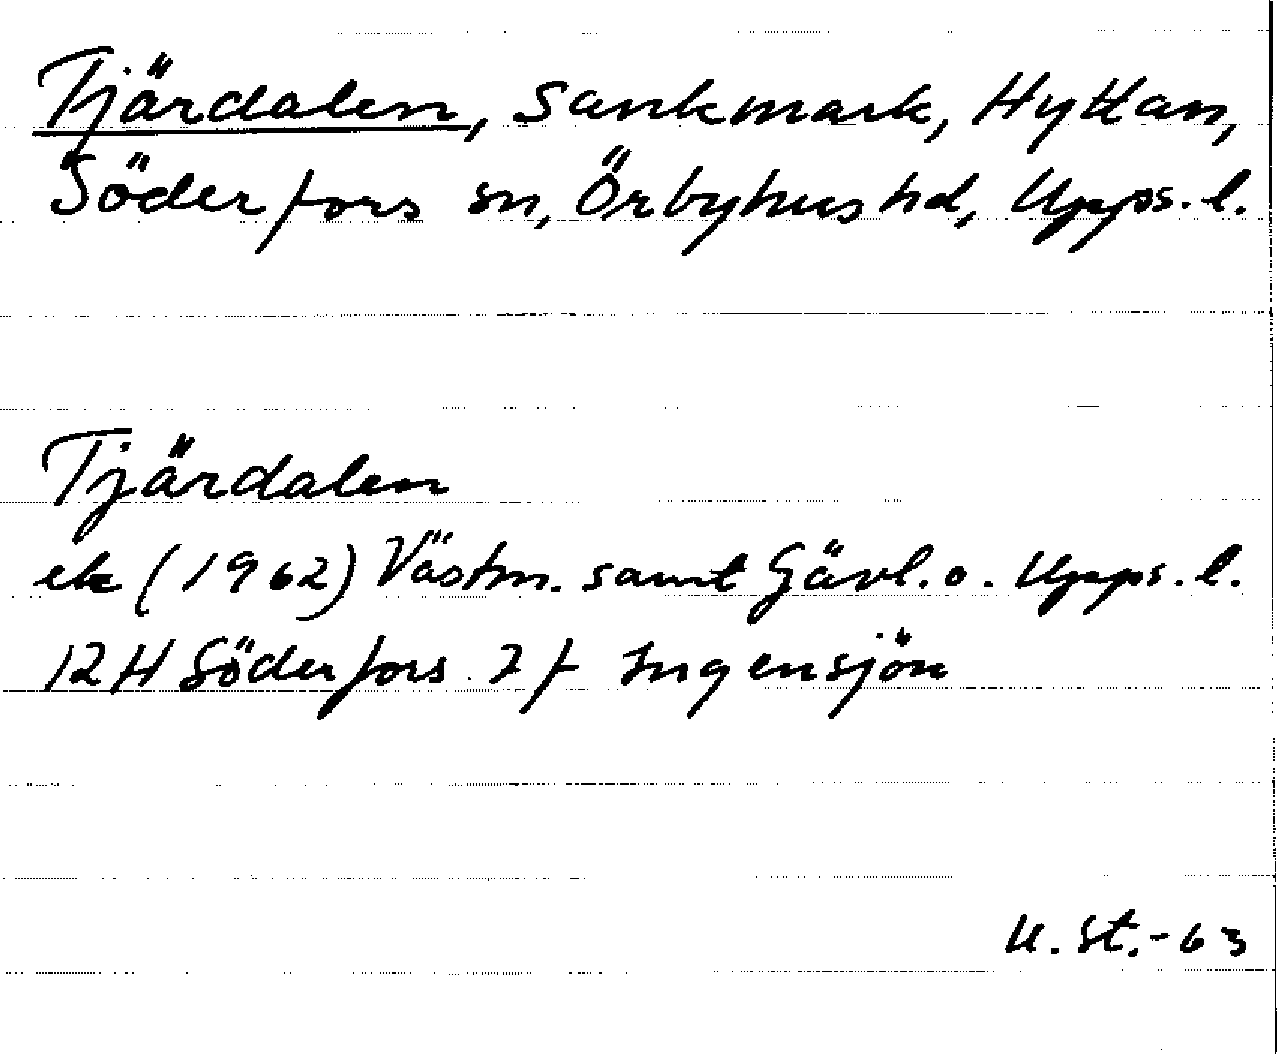 Tjärdalen, Sankmark, Hyttan,
Söderfors sn, Örbyhus hd, Upps. l.
Tjärdalen
ek (1962) Västm. samt Gävl. o. Upps. l.
12H Söderfors 7f Ingensjön
U. St. -63